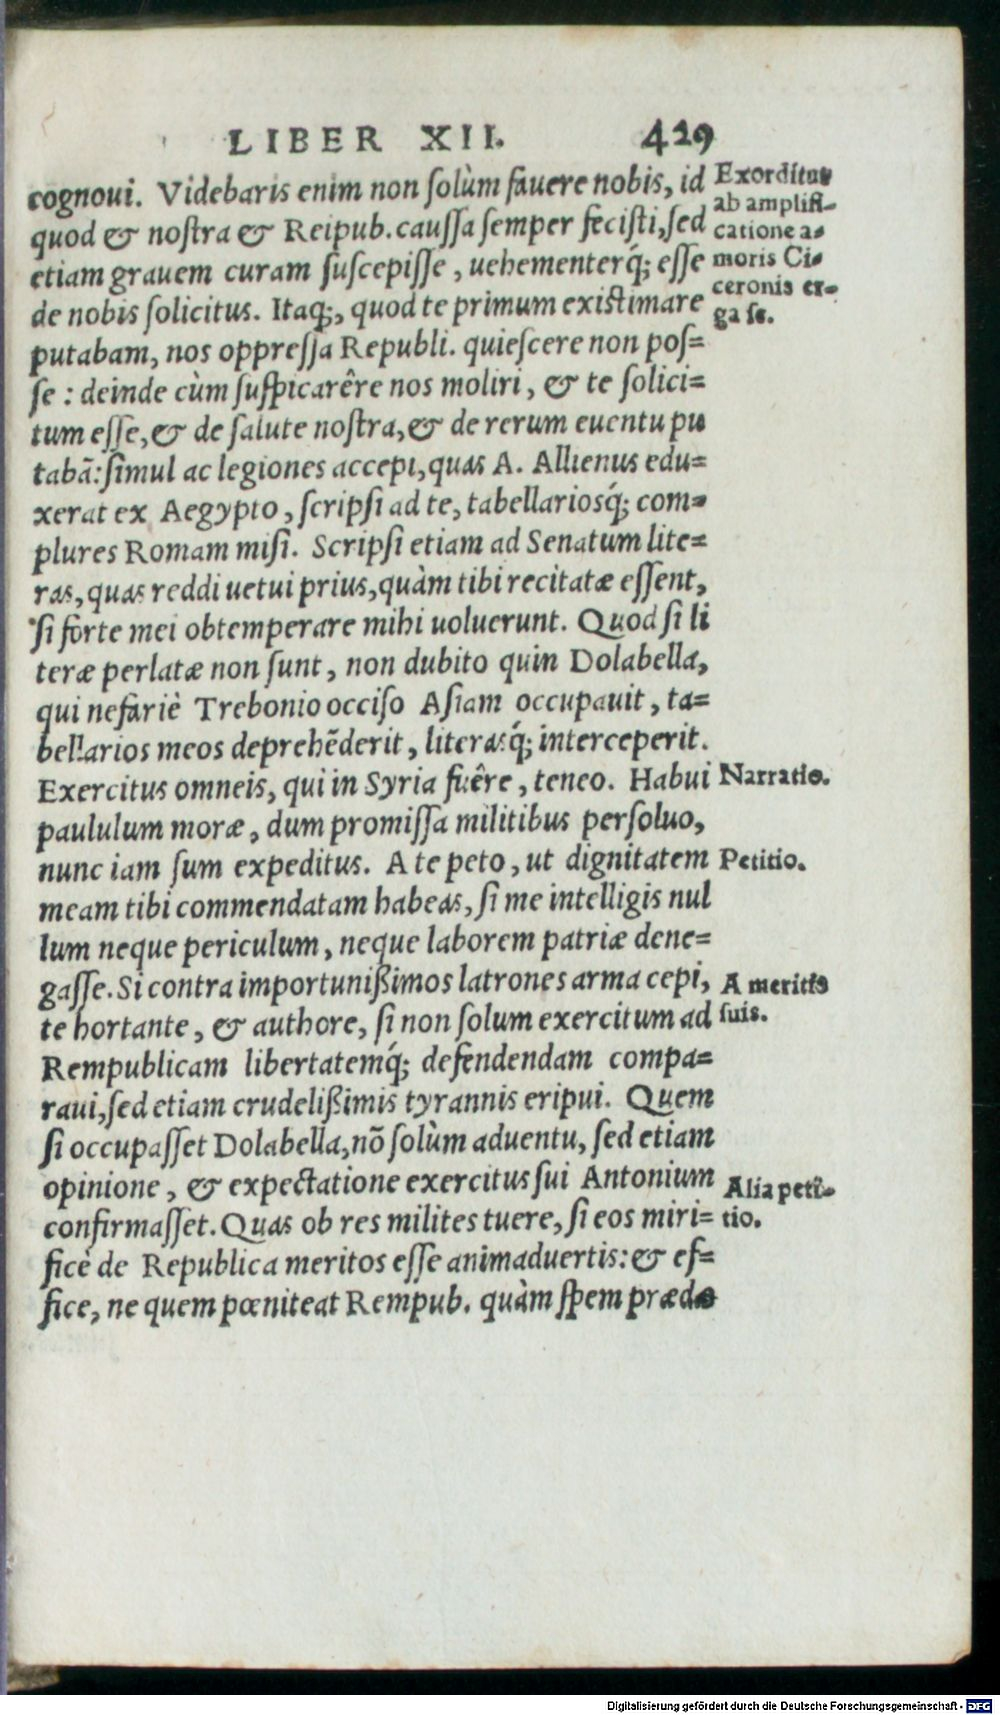 LIBER XII. 429
cognoui. Videbaris enim non ſolùm fauere nobis, id
quod & noſtra & Reipub. cauſſa ſemper feciſti, ſed
etiam grauem curam ſuſcepiſſe, uehementerq́; eſſe
de nobis ſolicitus. Itaq;, quod te primum exiſtimare
putabam, nos oppreſſa Republi. quieſcere non poſ=
ſe: deinde cùm ſuſpicarêre nos moliri, & te ſolici=
tum eſſe, & de ſalute noſtra, & de rerum euentu pu
tabã: ſimul ac legiones accepi, quas A. Allienus edu=
xerat ex Aegypto, ſcripſi ad te, tabellariosq́; com=
plures Romam miſi. Scripſi etiam ad Senatum lite=
ras, quas reddi uetui prius, quàm tibi recitatæ eſſent,
ſi forte mei obtemperare mihi uoluerunt. Quod ſi li
teræ perlatæ non ſunt, non dubito quin Dolabella,
qui nefariè Trebonio occiſo Aſiam occupauit, ta=
bellarios meos deprehẽderit, literasq́; interceperit.
Exercitus omneis, qui in Syria fuêre, teneo. Habui
paululum moræ, dum promiſſa militibus perſoluo,
nunc iam ſum expeditus. A te peto, ut dignitatem
meam tibi commendatam habeas, ſi me intelligis nul
lum neque periculum, neque laborem patriæ dene=
gaſſe. Si contra importunißimos latrones arma cepi,
te hortante, & authore, ſi non ſolum exercitum ad
Rempublicam libertatemq́; defendendam compa=
raui, ſed etiam crudelißimis tyrannis eripui. Quem
ſi occupaſſet Dolabella, nõ ſolùm aduentu, ſed etiam
opinione, & expectatione exercitus ſui Antonium
confirmaſſet. Quas ob res milites tuere, ſi eos miri=
ficè de Republica meritos eſſe animaduertis: & ef=
fice, ne quem pœniteat Rempub. quàm ſpem prædæ
Exorditur
ab amplifi-
catione a-
moris Ci-
ceronis er-
ga ſe.
Narratio.
Petitio.
A meritis
ſuis.
Alia peti-
tio.
Digitalisierung gefördert durch die Deutsche Forschungsgemeinschaft - DFG